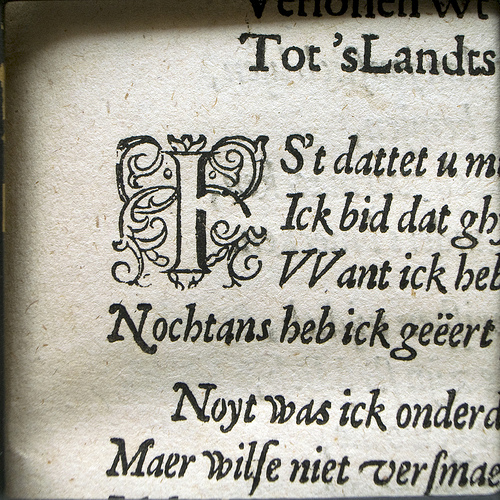 Tot 'sLandts
IS't dattet u
Ick bid dat
VVant ick
Nochtans heb ick geëert
Noyt was ick
Maer wilse niet